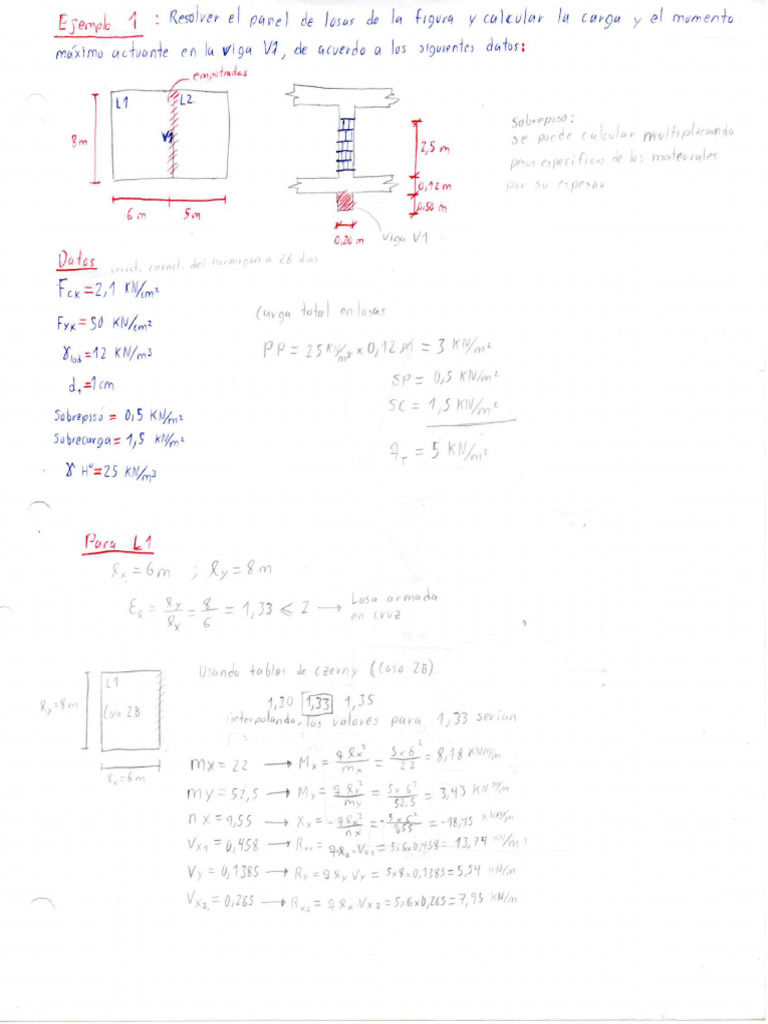 Ejemplo 1 : Resolver el panel de losas de la figura y calcular la carga y el momento
máximo actuante en la viga V1, de acuerdo a los siguientes datos:
empotradas
L1 L2
V1
8m
6 m 5 m
2,5 m
0,12 m
0,50 m
0,20 m
Viga V1
Sobrepiso:
se puede calcular multiplicando
pesos especificos de los materiales
por su espesor
Datos
resist. caract. del hormigon a 28 dias
Fck = 2,1 KN/cm²
Fyk = 50 KN/cm²
γlad = 12 KN/m3
d1 = 1cm
Sobrepiso = 0,5 KN/m²
Sobrecarga = 1,5 KN/m²
γ Hº = 25 KN/m3
Carga total en losas
PP = 25 KN/m³ x 0,12 m = 3 KN/m²
SP = 0,5 KN/m²
SC = 1,5 KN/m²
qT = 5 KN/m²
Para L1
ℓx = 6m ; ℓy = 8m
Eℓ = ℓy/ℓx = 8/6 = 1,33 ≤ 2 → Losa armada
en cruz
Usando tablas de czerny (Caso 2B)
1,30 1,33 1,35
interpolando, los valores para 1,33 serían
L1
Caso 2B
ℓy=8m
ℓx=6m
mx = 22 → Mx = qℓx²/mx = 5x6²/22 = 8,18 KNm/m
my = 52,5 → My = qℓx²/my = 5x6²/52,5 = 3,43 KN/m
nx = 9,55 → Xx = -qℓx²/nx = -5x6²/955 = -18,45 KNm/m
Vx1 = 0,458 → Rx1 = qℓx·Vx1 = 5x6x0,458 = 13,74 KN/m
Vy = 0,1385 → Ry = qℓy Vy = 5x8x0,1385 = 5,54 KN/m
Vx2 = 0,265 → Rx2 = qℓx·Vx2 = 5x6x0,265 = 7,95 KN/m